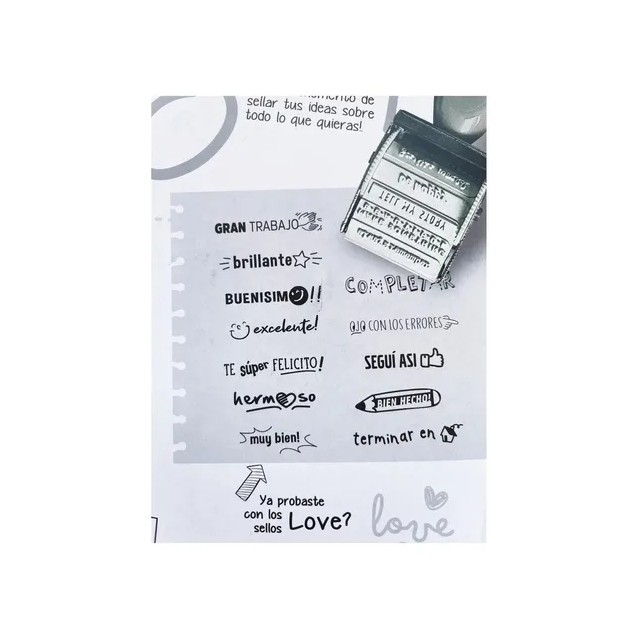 momento de
sellar tus ideas sobre
todo lo que quieras!
GRAN TRABAJO
brillante
BUENISIMO!!
excelente!
TE súper FELICITO!
hermoso
muy bien!
COMPLETAR
OJO CON LOS ERRORES
SEGUÍ ASI
BIEN HECHO!
terminar en
BE HAPPY
TELL MY STORY
MAKE SOMETHING
Ya probaste
con los
sellos Love?
love